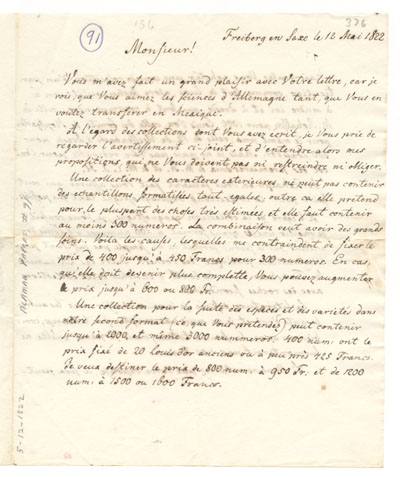 91
136
326
Freiberg en Saxe le 12 Mai 1822
Monsieur!
Vous m'avez fait un grand plaisir avec Votre lettre, car je
vois, que Vous aimez les sciences d'Allemagne tant, que Vous en
voulez transferer en Mexique.
A l'égard des collections dont Vous avez ecrit, je Vous prie de
regarder l'avertissement ci-joint, et d'entendre alors mes
propositions, qui ne Vous doivent pas ni restreindre ni obliger.
Une collection des caracteres exterieures, ne peut pas contenir
des echantillons formatisés tout egales, outre ca elle pretend
pour le pluspart des choses très estimées, et elle faut contenir
au moins 300 numeros. La combinaison veut avoir des grands
soins. Voilà les causes, lesquelles me contraindent de fixer le
prix de 400 jusqu'à 450 Francs pour 300 numeros. En cas,
qu'elle doit devenir plus complette, Vous pouvez augmenter
le prix jusqu'à 600 ou 800 Fr.
Une collection pour la suite des especes et des varietés dans
notre second format (ce, que Vous pretendez) peut contenir
jusqu'à 2000, et même 3000 nummeros; 400 num: ont le
prix fixé de 20 louis d'or anciens ou à peu près 425 Francs.
Je veux destiner le prix de 800 num: à 950 Fr. et de 1200
num: à 1500 ou 1600 Francs.
5-12-1822